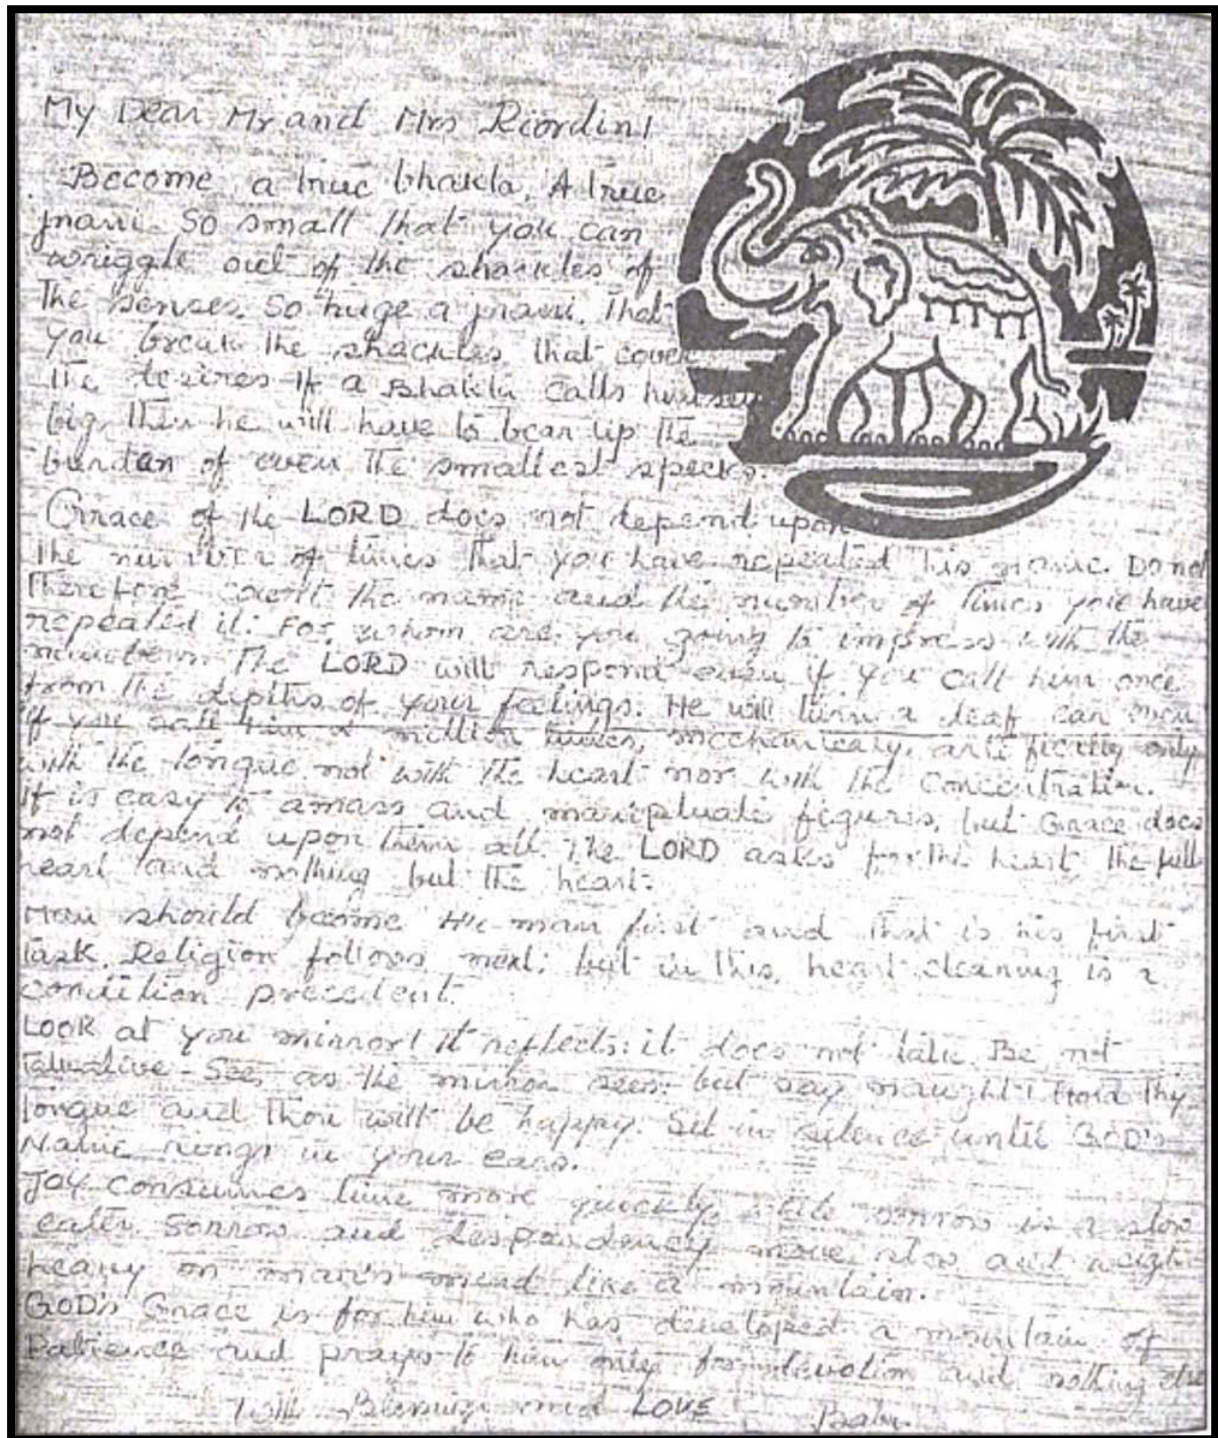 My Dear Mr and Mrs Riordin!
Become a true bhakta. A true
jnani. So small that you can
wriggle out of the shackles of
The senses. So huge a jnani. That
you break the shackles that cover
the desires If a Bhakta calls himself
big, then he will have to bear up the
burdan of even the smallest specks.
Grace of the LORD does not depend upon
the number of times that you have repeated his name. Do not
therefore count the name and the number of times you have
repeated it. For, whom are you going to impress with the
numbers. The LORD will respond even if you call him once
from the depths of your feelings. He will turn a deaf ear even
if you call him a million times, mechanicaly, artifically only
with the tongue not with the heart nor with the Concentration.
It is easy to amass and manipluate figures, but Grace does
not depend upon them all. The LORD asks for the heart, the full
heart and nothing but the heart.
Man should become the man first and that is his first
Task. Religion follows next; but in this, heart cleaning is a
condition precedent.
LOOK at you mirror! It reflects: it does not talk. Be not
Talkative - See, as the mirror sees: but say naught! Hold thy
Tongue and thou will be happy. Sit in silence until GOD's
Name rings in your ears.
Joy consumes time more quickly, while sorrow is a slow
eater. Sorrow and despondency move slow and weigh
heavy on man's mind like a mountain.
GOD's Grace is for him who has developed a mountain of
Patience and prays to him only for devotion and nothing else
With Blessings and LOVE Baba